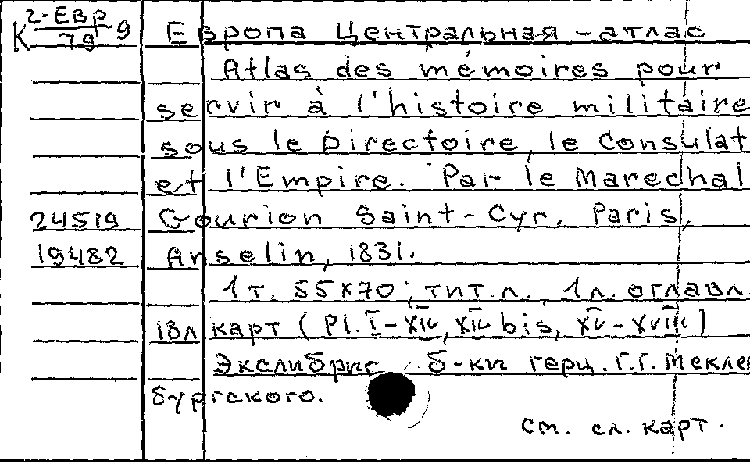 К 2-ЕВР/79 9 Европа Центральная - атлас
Atlas des mémoires pour
servir à l'histoire militaire
sous le Directoire, le Consulat
et l'Empire. Par le Marechal
24519 Gourion Saint-Cyr. Paris,
19482 Anselin, 1831.
1 т. 55x70; тит. л., 1 л. оглавл.
18 л карт (Pl. I-XIV, XIV bis, XV-XVIII)
Экслибрис б-ки герц. Г.Г. Мекле
бургского.
см. сл. карт.